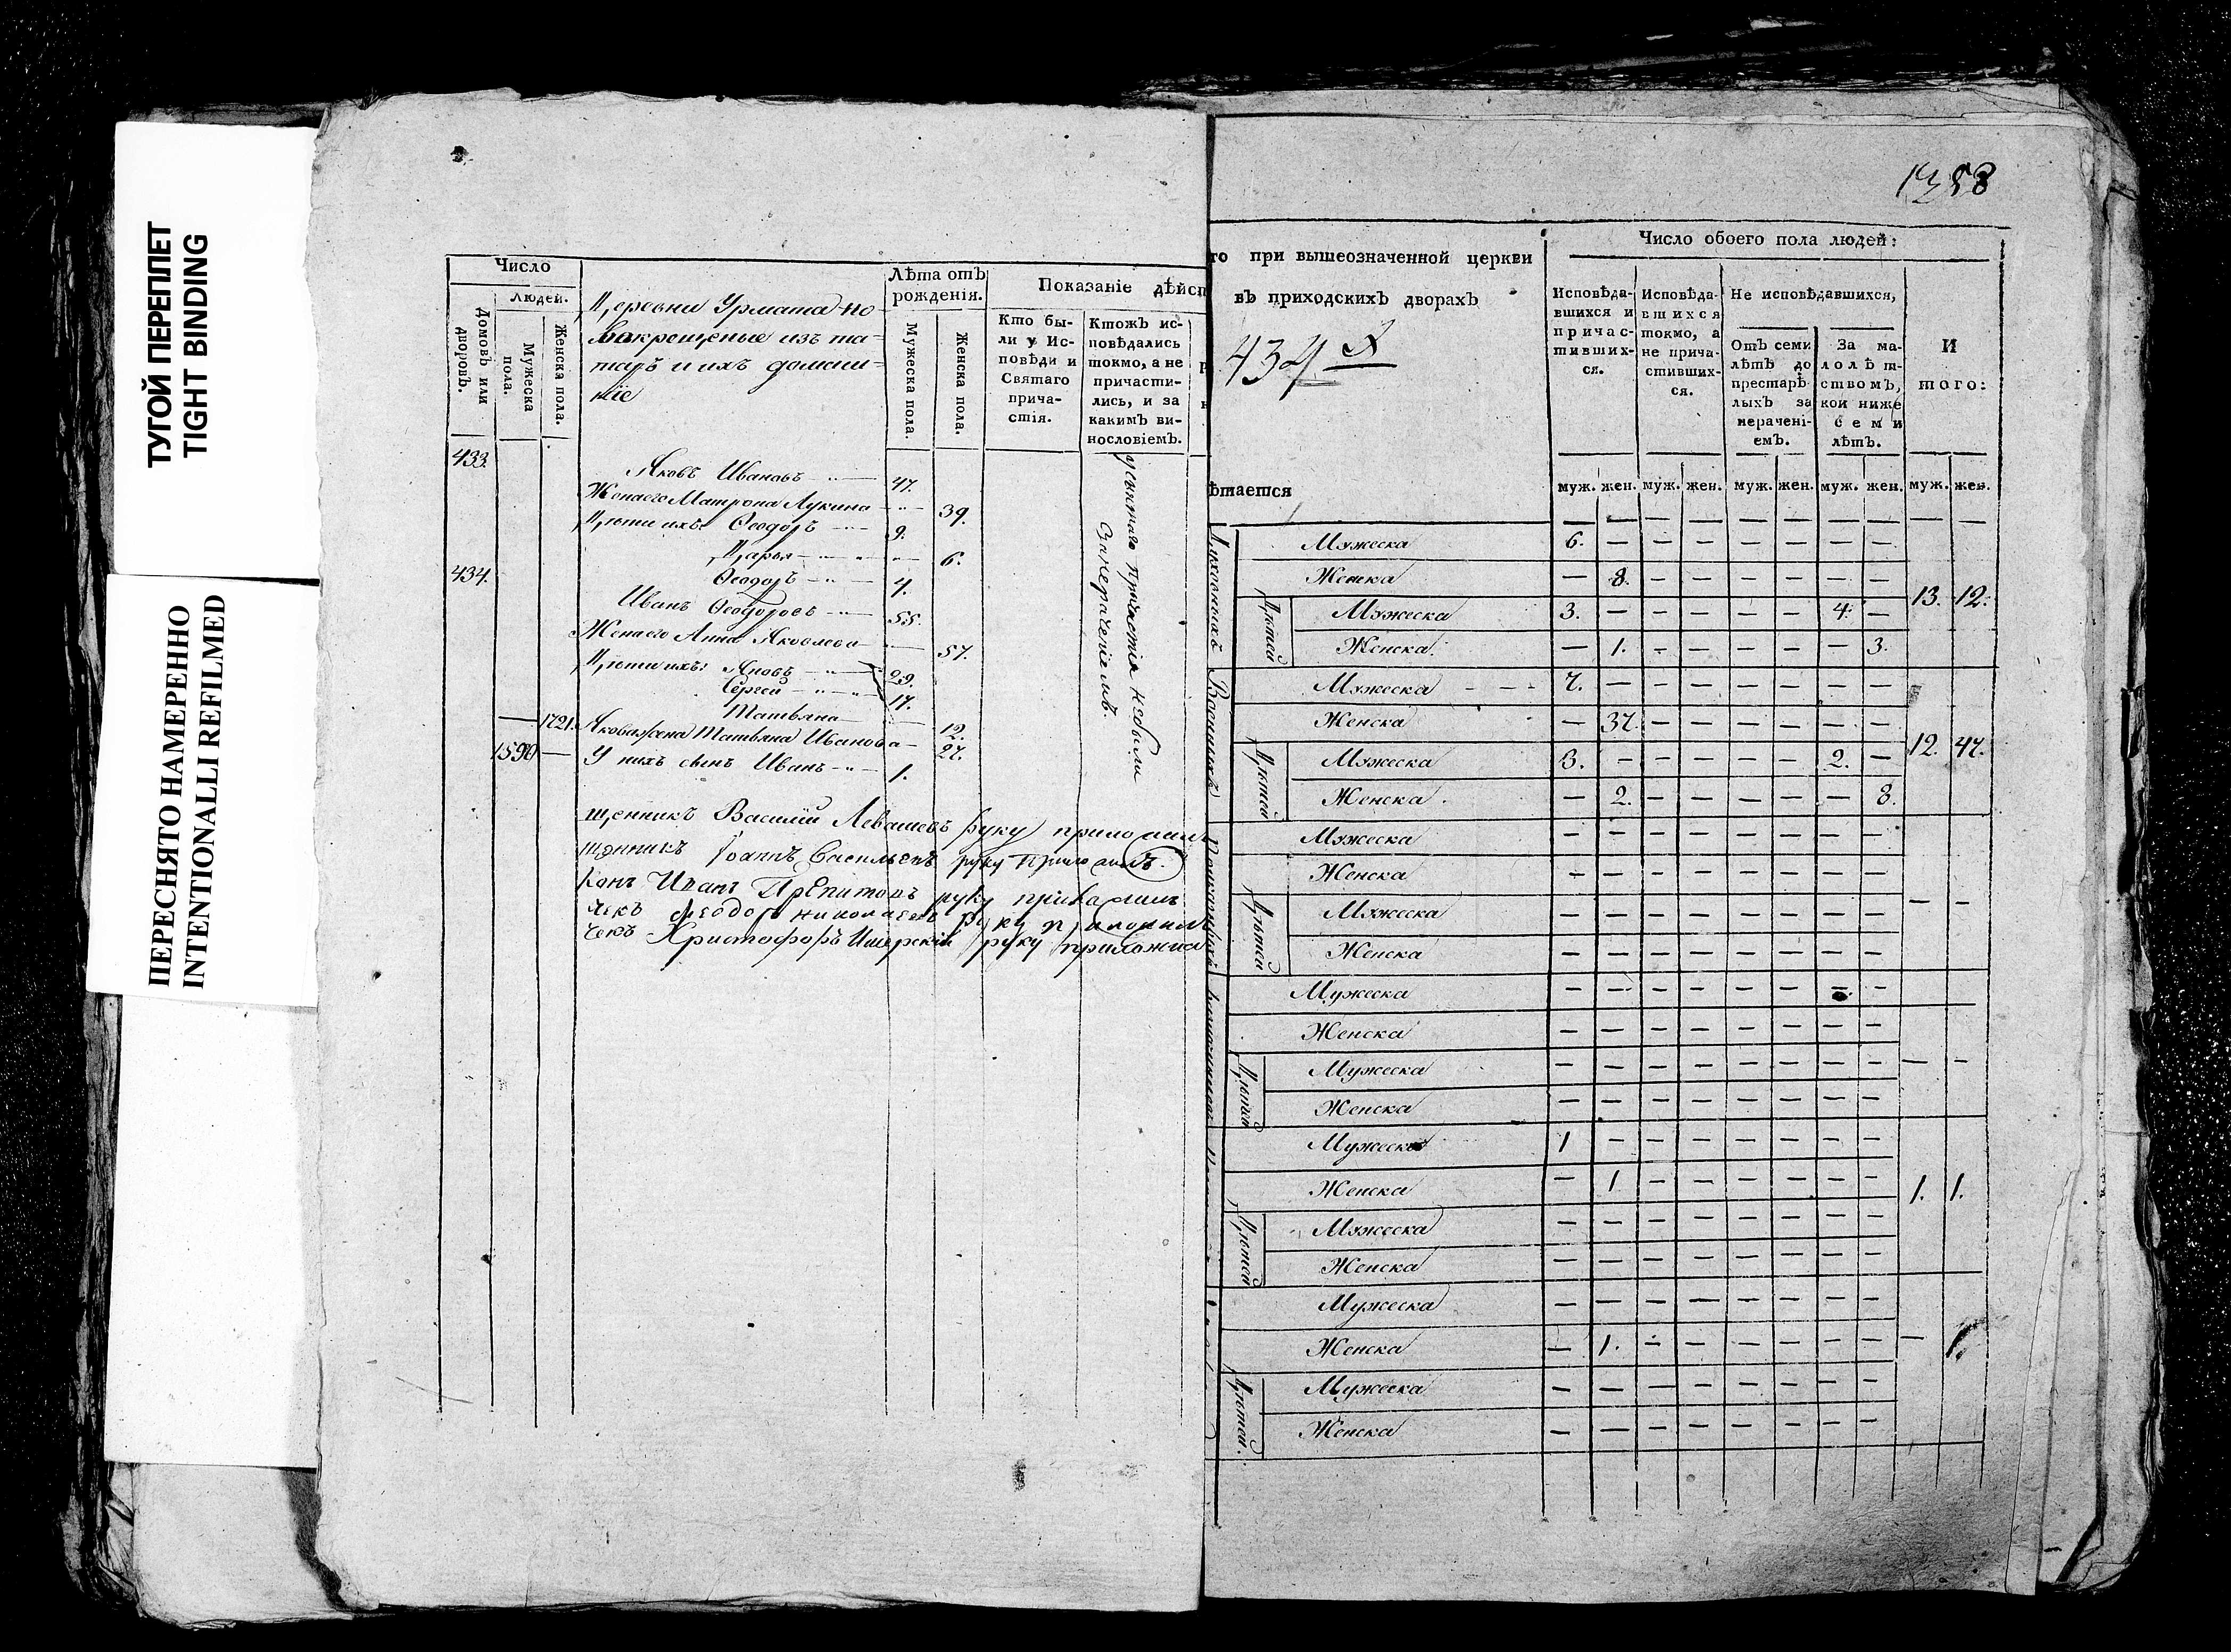 ТУГОЙ ПЕРЕПЛЕТ
TIGHT BINDING
ПЕРЕСНЯТО НАМЕРЕННО
INTENTIONALLI REFILMED
Число
Людей.
Домовъ или дворовъ.
Мужеска пола.
Женска пола.
Деревни Урмата но
вокрещеные изъ та=
таръ и ихъ домаш=
ніе
Лѣта отъ рожденія.
Мужеска пола.
Женска пола.
Показаніе дѣйст
Кто бы-
ли у Ис-
повѣди и
Святаго
прича-
стія.
Ктожъ ис-
повѣдались
токмо, а не
причасти-
лись, и за
какимъ ви-
нословіемъ.
433. Яковъ Ивановъ 47.
Жена его Матрона Лукина 39.
Дѣти ихъ: Ѳеодоръ 9.
Дарья 6.
Ѳеодоръ 4.
434. Иванъ Ѳеодоровъ 55.
Жена его Анна Яковлева 57.
Дѣти ихъ: Яковъ 29.
Сергей 17.
Татьяна 12.
— 1721. Якова жена Татьяна Иванова 27.
1590 — У нихъ сынъ Иванъ 1.
у святаго причастія не были
за нераченіемъ.
щенникъ Василій Левашевъ руку приложилъ
щенникъ Іоаннъ Васильевъ руку приложилъ.
конъ Иванъ руку приложилъ
чекъ Ѳеодоръ Николаевъ руку приложилъ
чекъ Христофоръ Ишерскій руку приложил
1353
го при вышеозначенной церкви
въ приходскихъ дворахъ
434
ѣтается
Число обоего пола людей:
Исповѣда-
вшихся и
причас-
тивших-
ся.
Исповѣда-
вшихся
токмо, а
не прича-
стивших-
ся.
Не исповѣдавшихся,
Отъ семи
лѣтъ до
престарѣ-
лыхъ за
нерачені-
емъ.
За ма-
лолѣт-
ствомъ,
кои ниже
семи
лѣтъ.
И
того:
муж. жен. муж. жен. муж. жен. муж. жен. муж. жен.
— — — — — — — — — —
Духовныхъ
Мужеска 6. — — — — — — —
Женска — 8. — — — — — —
13. 12.
Дѣтей
Мужеска 3. — — — — — 4. —
Женска. — 1. — — — — — 3.
Военныхъ
Мужеска 7. — — — — — — —
Женска — 37. — — — — — —
12. 47.
Дѣтей
Мужеска 3. — — — — — 2. —
Женска. — 2. — — — — — 8.
Мужеска — — — — — — — —
Женска — — — — — — — —
— —
Дѣтей
Мужеска — — — — — — — —
Женска — — — — — — — —
Мужеска — — — — — — — —
Женска — — — — — — — —
— —
Дѣтей
Мужеска — — — — — — — —
Женска — — — — — — — —
Мужеска 1 — — — — — — —
Женска — 1 — — — — — —
1. 1.
Дѣтей
Мужеска — — — — — — — —
Женска — — — — — — — —
Мужеска — — — — — — — —
Женска — 1. — — — — — —
— 1.
Дѣтей.
Мужеска — — — — — — — —
Женска — — — — — — — —